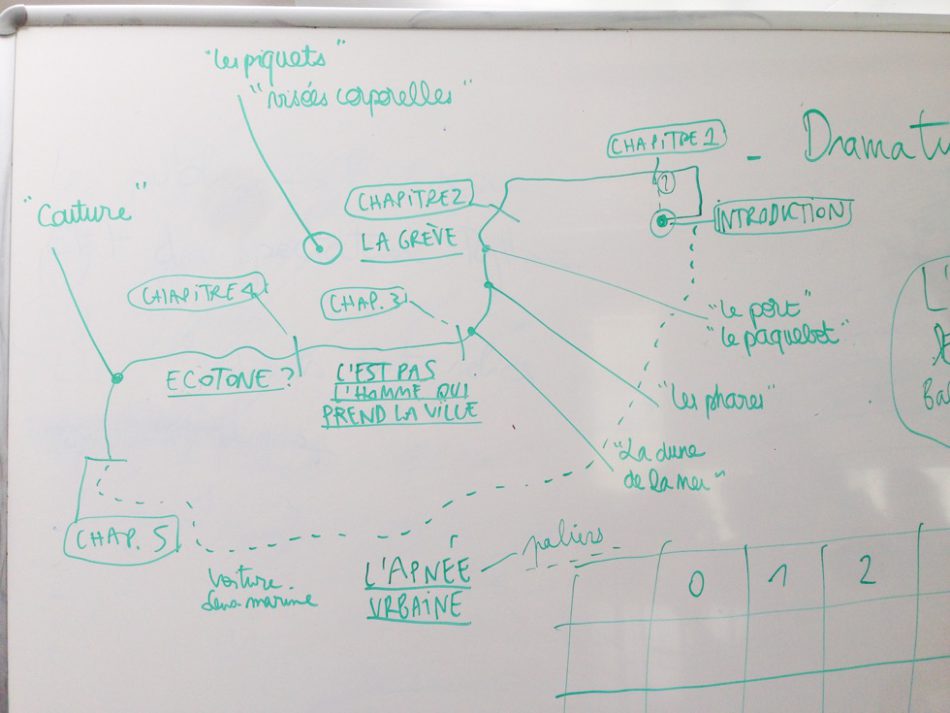 "les piquets"
"visées corporelles"
CHAPITRE 1
- Dramatu
?
CHAPITRE 2
INTRODUCTION
"Couture"
LA GRÈVE
CHAPITRE 4
CHAP. 3
"le port"
"le paquebot"
L'
ECOTONE ?
C'EST PAS
L'HOMME QUI
PREND LA VILLE
"les phares"
Ba
"La dune
de la mer"
CHAP. 5
paliers
voiture
sous-marine
L'APNÉE
URBAINE
0 1 2